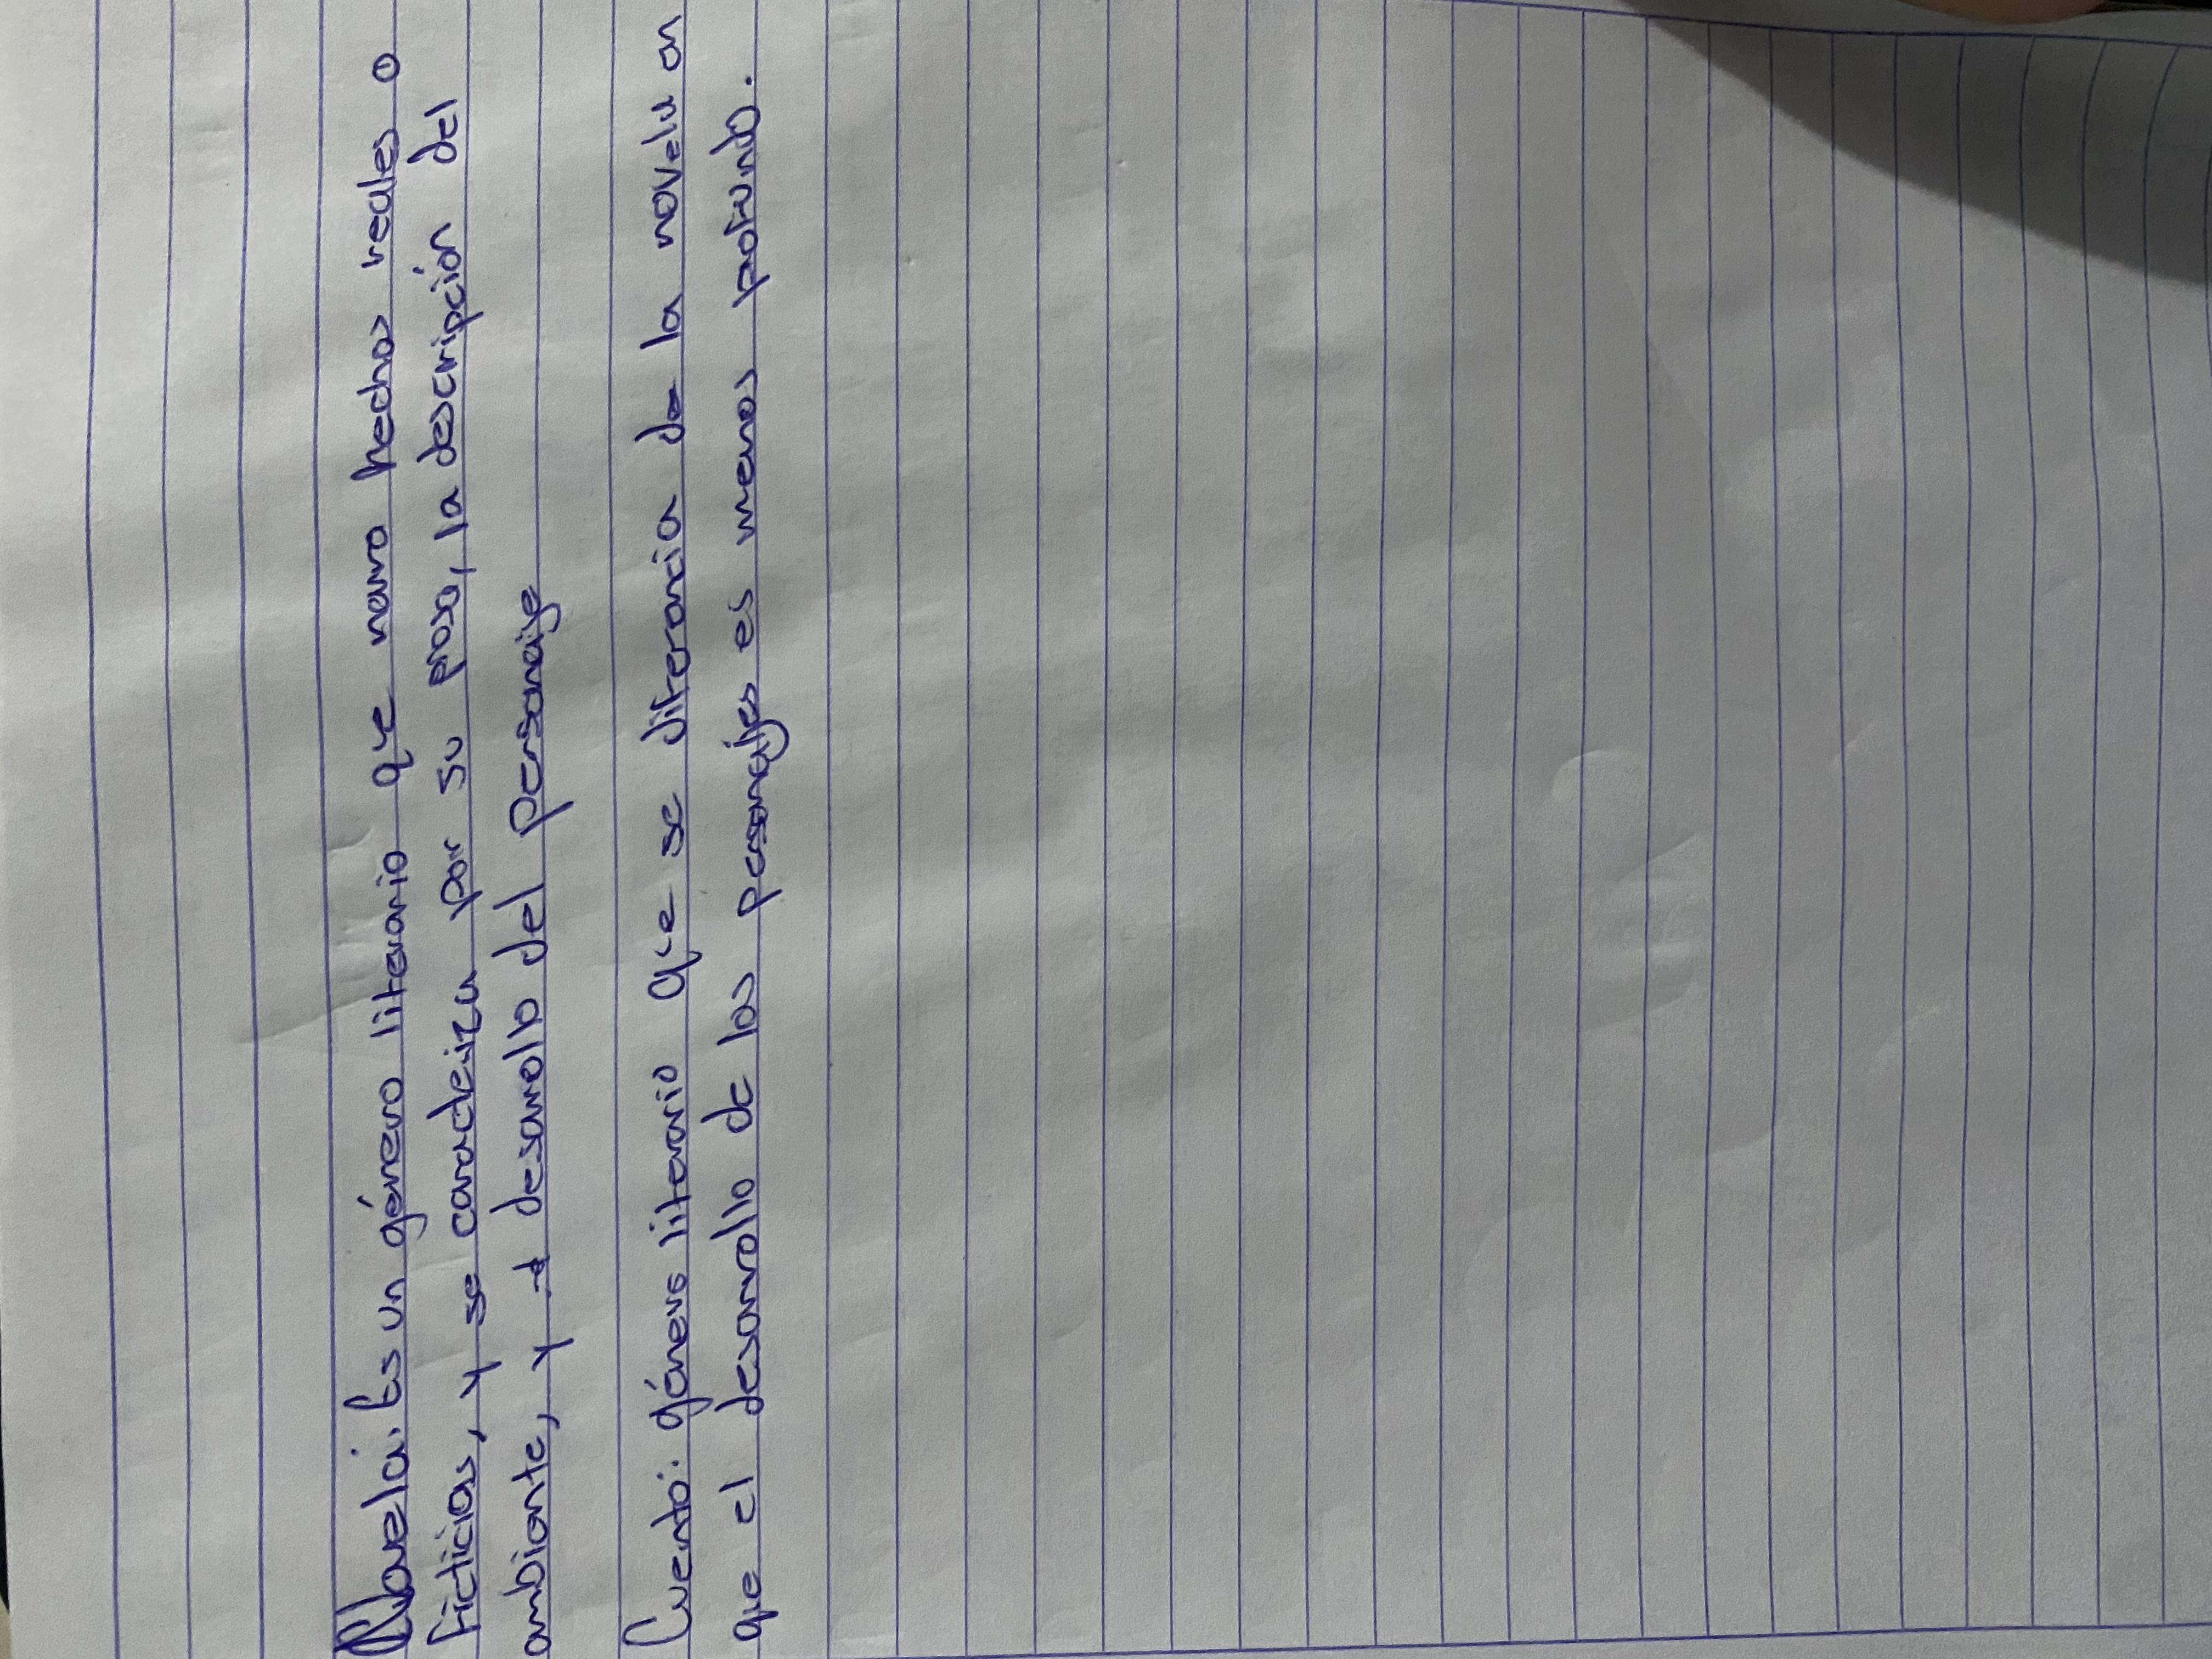 Novela: Es un género literario que narra hechos reales o
ficticios, y se caracteriza por su prosa, la descripción del
ambiente, y el desarrollo del personaje
Cuento: género literario que se diferencia de la novela en
que el desarrollo de los personajes es menos profundo.